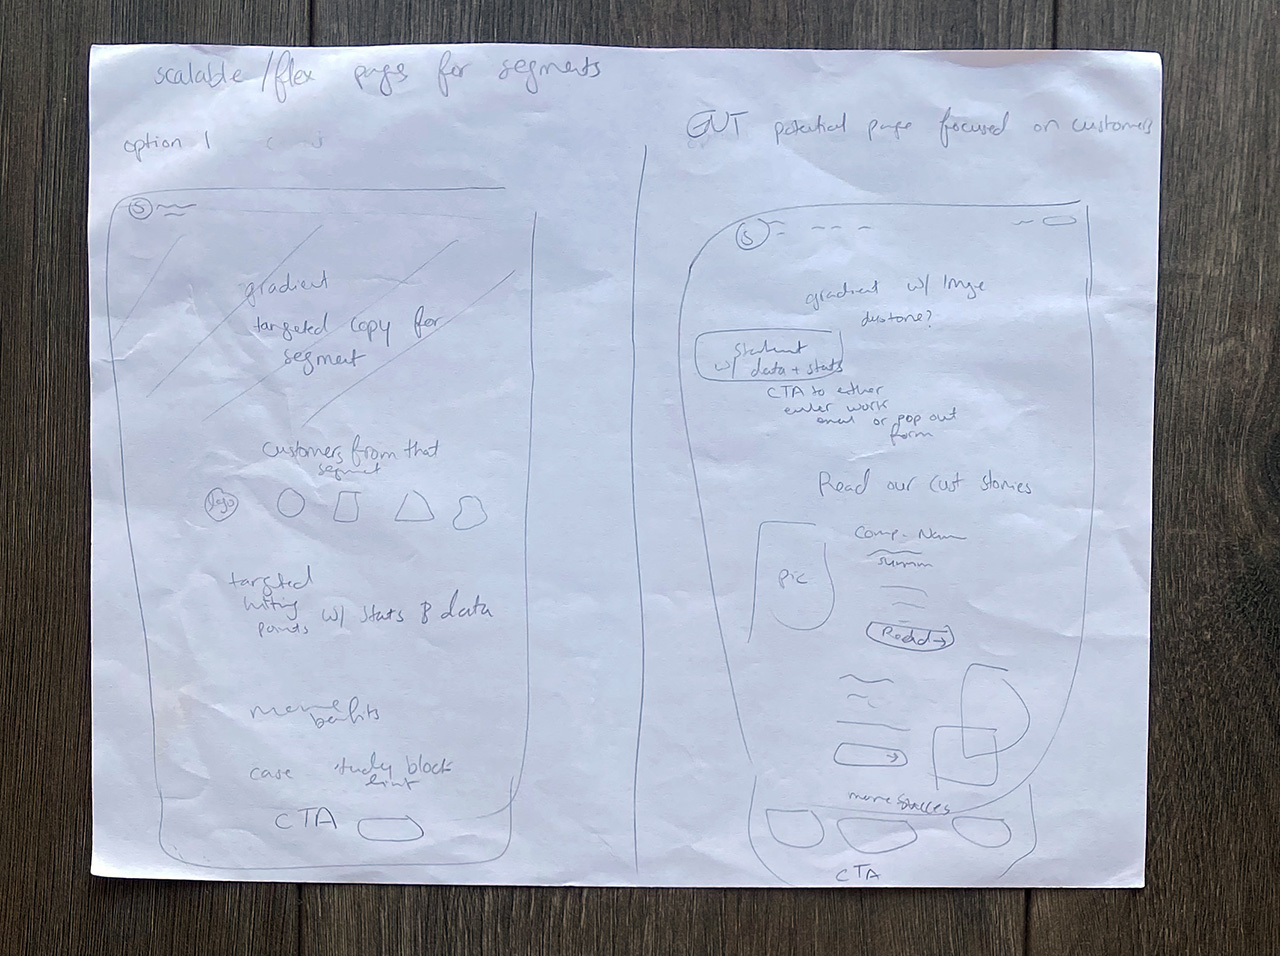 scalable/flex page for segments
option 1
S
gradient
targeted copy for
segment
customers from that
segment
logo
targeted
hitting
points w/ stats & data
more
benefits
case study block
CTA
potential page focused on customers
S
gradient w/ image
duotone?
w/ data + stats
CTA to either
enter work
email or pop out
form
Read our cust stories
pic
Comp. Nam
summ
Read →
→
more
CTA